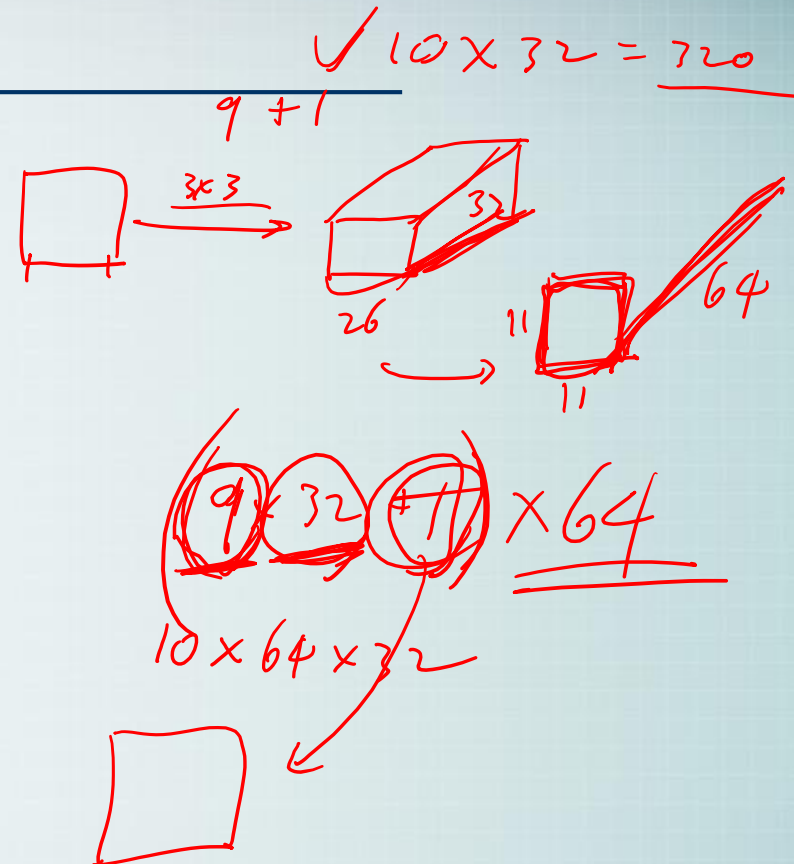 ✓ 10 × 32 = 320
9 + 1
3×3
32
26
64
11
11
(9 × 32 + 1) × 64
10 × 64 × 32